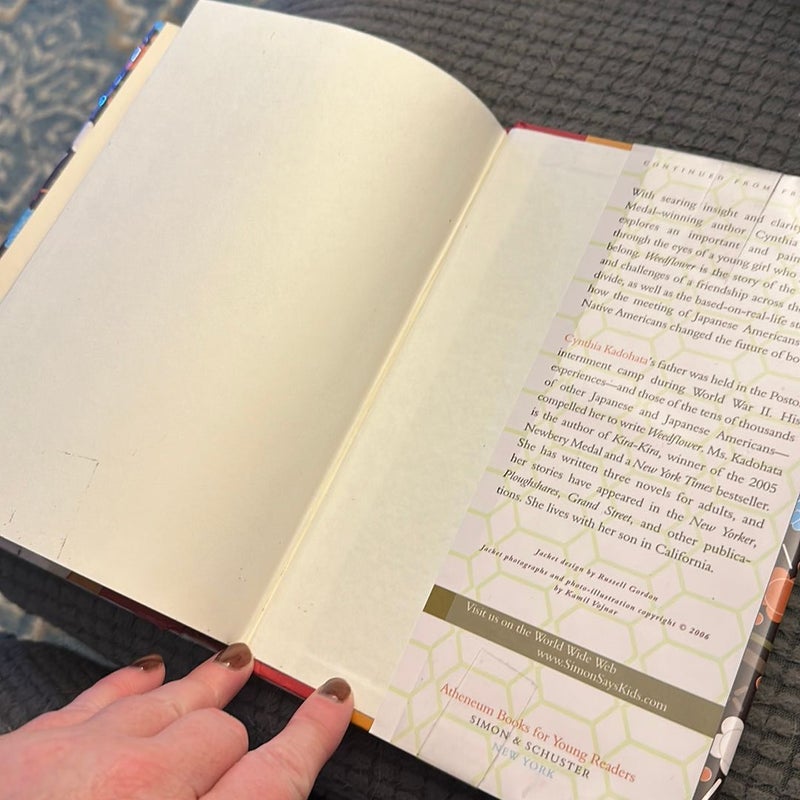 CONTINUED FROM
With searing insight and clarity
Medal–winning author Cynthia
explores an important and
through the eyes of a young girl who
belong. Weedflower is the story of the
and challenges of a friendship across the
divide, as well as the based-on-real-life
how the meeting of Japanese Americans
Native Americans changed the future of
Cynthia Kadohata's father was held in the
internment camp during World War II. His
experiences—and those of the tens of thousands
of other Japanese and Japanese Americans—
compelled her to write Weedflower. Ms. Kadohata
is the author of Kira-Kira, winner of the 2005
Newbery Medal and a New York Times bestseller.
She has written three novels for adults, and
her stories have appeared in the New Yorker,
Ploughshares, Grand Street, and other publica-
tions. She lives with her son in California.
Jacket design by Russell Gordon
Jacket photographs and photo-illustration copyright © 2006
by Kamil Vojnar
Visit us on the World Wide Web
www.SimonSaysKids.com
Atheneum Books for Young Readers
SIMON & SCHUSTER
NEW YORK